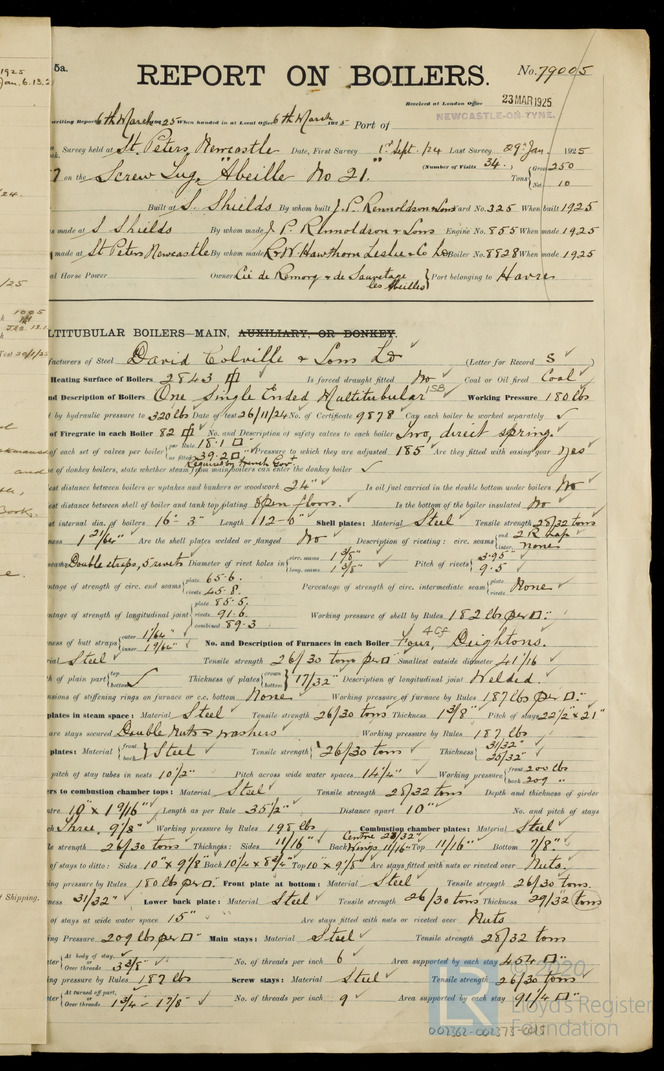 5a.
REPORT ON BOILERS.
No. 79005
Received at London Office 23 MAR 1925
NEWCASTLE-ON-TYNE.
writing Report 6th March 1925 When handed in at Local Office 6th March 1925 Port of
Survey held at St. Peters, Newcastle Date, First Survey 1st Sept. /24 Last Survey 29th Jan. 1925
on the Screw Tug, "Abeille No 21." (Number of Visits 34.) Tons Gross 250 Net 10
Built at S. Shields By whom built J. P. Rennoldson & Sons Yard No. 325 When built 1925
made at S Shields By whom made J P Rennoldson & Sons Engine No. 855 When made 1925
made at St Peters Newcastle By whom made R & W. Hawthorn Leslie & Co Ld Boiler No. 8828 When made 1925
Horse Power Owner Cie de Remorq & de Sauvetage les Abeilles Port belonging to Havre
MULTITUBULAR BOILERS—MAIN, AUXILIARY, OR DONKEY.
facturers of Steel David Colville & Sons Ld (Letter for Record S)
Heating Surface of Boilers 2843 Is forced draught fitted No Coal or Oil fired Coal
nd Description of Boilers One Single Ended Multitubular SB Working Pressure 180 lbs
by hydraulic pressure to 320 lbs Date of test 26/11/24 No. of Certificate 9878 Can each boiler be worked separately ✓
of Firegrate in each Boiler 82 No. and Description of safety valves to each boiler Two, direct spring.
of each set of valves per boiler per Rule 18.1 □" as fitted 39.2 □" Pressure to which they are adjusted 185 Are they fitted with easing gear Yes
Required by French Gov.
of donkey boilers, state whether steam from main boilers can enter the donkey boiler ✓
st distance between boilers or uptakes and bunkers or woodwork 24" Is oil fuel carried in the double bottom under boilers No
st distance between shell of boiler and tank top plating open floors. Is the bottom of the boiler insulated No
st internal dia. of boilers 16'-3" Length 12'-6" Shell plates: Material Steel Tensile strength 28/32 tons
ness 1 21/64" Are the shell plates welded or flanged No Description of riveting: circ. seams end 2 R Lap inter. none
Double straps, 5 rivets Diameter of rivet holes in circ. seams 1 3/8" long. seams 1 3/8" Pitch of rivets 3.95" 9.5
ntage of strength of circ. end seams plate 65.6. rivets 45.8. Percentage of strength of circ. intermediate seam plate rivets None
ntage of strength of longitudinal joint plate 85.5. rivets 91.6. combined 89.3 Working pressure of shell by Rules 182 lbs per □"
ness of butt straps outer inner No. and Description of Furnaces in each Boiler Four, Deightons.
ial Steel Tensile strength 26/30 tons per □" Smallest outside diameter 41 1/16
of plain part top bottom ✓ Thickness of plates crown bottom 17/32" Description of longitudinal joint Welded.
nsions of stiffening rings on furnace or c.c. bottom None Working pressure of furnace by Rules 187 lbs per □".
plates in steam space: Material Steel Tensile strength 26/30 tons Thickness 1 3/8" Pitch of stays 22 1/2" x 21"
are stays secured Double Nuts & washers Working pressure by Rules 187 lbs.
plates: Material front back Steel Tensile strength 26/30 tons Thickness 31/32" 25/32"
pitch of stay tubes in nests 10 1/2" Pitch across wide water spaces 14 1/4" Working pressure front 200 lbs back 209 "
ers to combustion chamber tops: Material Steel Tensile strength 28/32 tons Depth and thickness of girder
ntre 10" x 1 9/16" Length as per Rule 35 1/2" Distance apart 10" No. and pitch of stays
ch Three, 9 7/8" Working pressure by Rules 198 lbs Combustion chamber plates: Material Steel
le strength 26/30 tons Thickness: Sides 11/16" Back Centre 23/32" Wings 11/16" Top 11/16" Bottom 7/8"
of stays to ditto: Sides 10" x 9 7/8" Back 10 1/4 x 8 3/4" Top 10" x 9 7/8" Are stays fitted with nuts or riveted over Nuts.
ing pressure by Rules 180 lbs per □". Front plate at bottom: Material Steel Tensile strength 26/30 tons.
ness 31/32" Lower back plate: Material Steel Tensile strength 26/30 tons Thickness 29/32 tons
of stays at wide water space 15" Are stays fitted with nuts or riveted over Nuts
ng Pressure 209 lbs per □" Main stays: Material Steel Tensile strength 28/32 tons
At body of stay, or Over threads 3 3/8" No. of threads per inch 6 Area supported by each stay 454 □"
ing pressure by Rules 187 lbs Screw stays: Material Steel Tensile strength 26/30 tons
At turned off part, or Over threads 1 3/4 - 1 7/8" No. of threads per inch 9 Area supported by each stay 91 1/4 □"
© 2020
LR Lloyd's Register
Foundation
002362-002373-0015